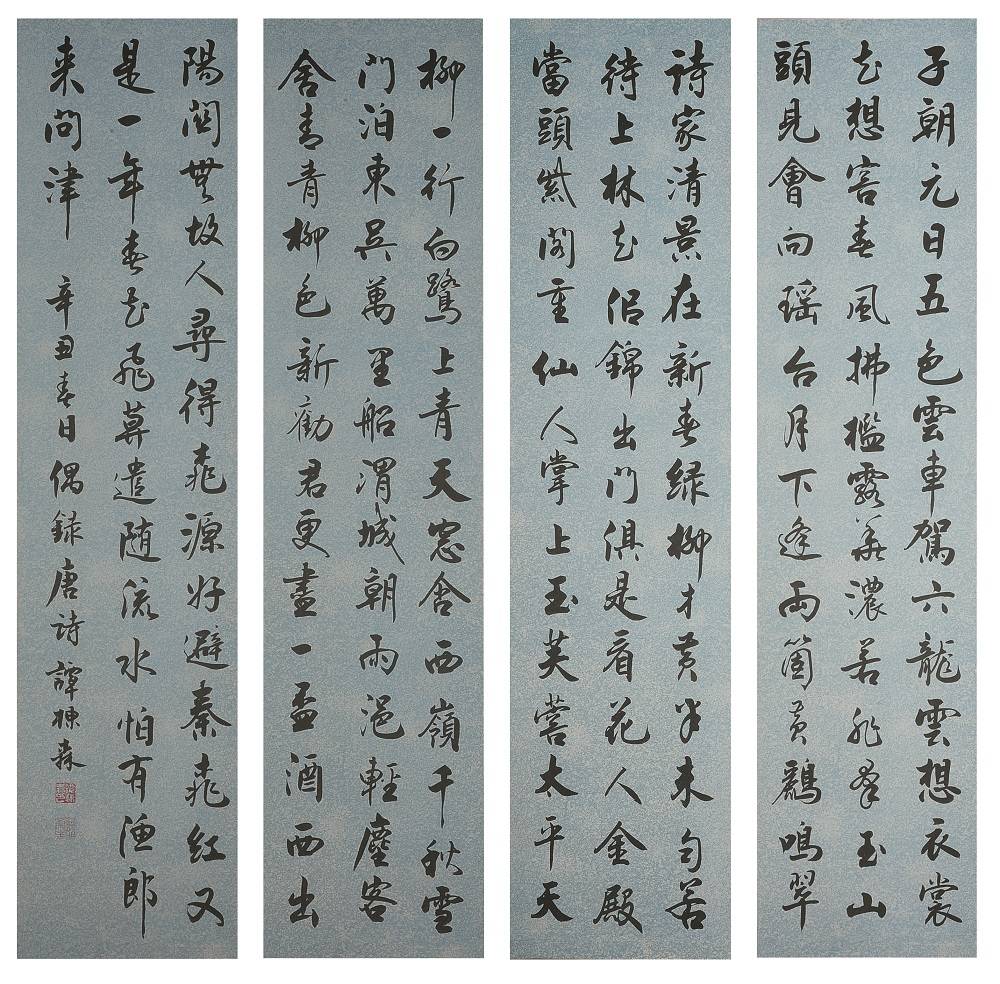 詩家清景在新春绿柳才黄半未匀若
待上林花侣錦出門俱是看花人金殿
當頭紫閣重仙人掌上玉芙蓉太平天
子朝元日五色雲車駕六龍雲想衣裳
花想容春風拂檻露華濃若非羣玉山
頭見會向瑶台月下逢兩箇黄鸝鳴翠
柳一行白鷺上青天窓含西嶺千秋雪
門泊東吴萬里船渭城朝雨浥輕塵客
舍青青柳色新勸君更盡一盃酒西出
陽關無故人尋得桃源好避秦桃紅又
是一年春花飛莫遣随流水怕有漁郎
来問津 辛丑春日偶録唐詩 譚棟森